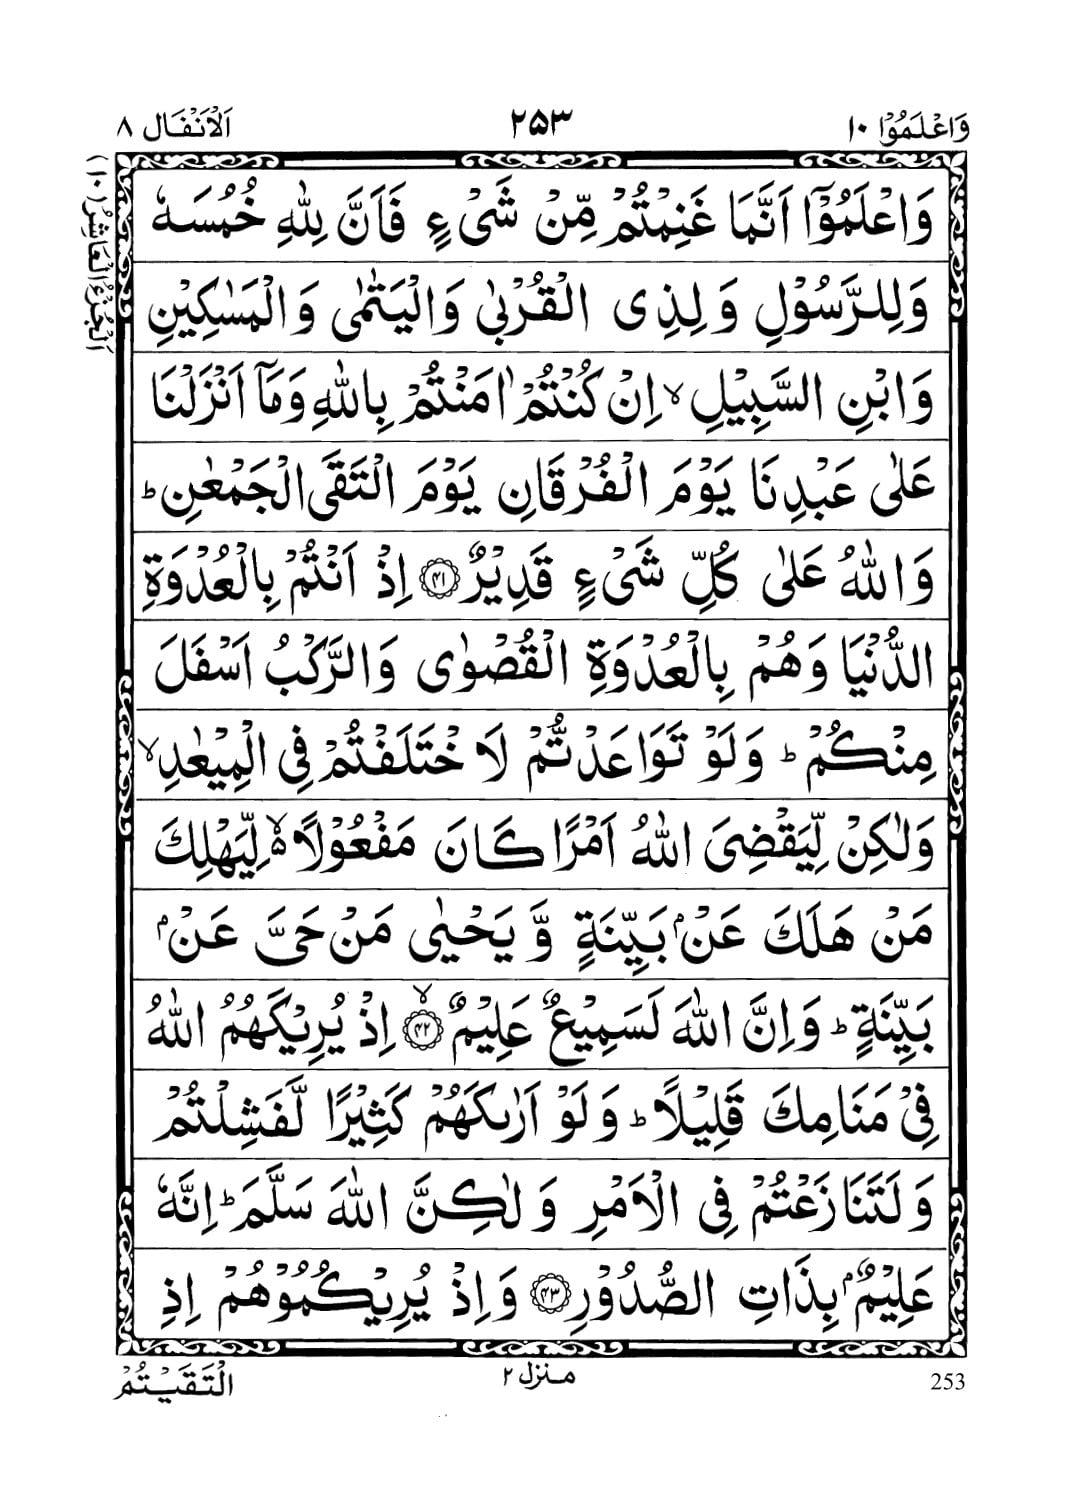 وَاعْلَمُوْا ١٠
٢٥٣
اَلْاَنْفَال ٨
اَلْجُزْءُ الْعَاشِرُ (١٠)
وَاعْلَمُوْۤا اَنَّمَا غَنِمْتُمْ مِّنْ شَیْءٍ فَاَنَّ لِلّٰهِ خُمُسَهٗ
وَلِلرَّسُوْلِ وَلِذِی الْقُرْبٰی وَالْیَتٰمٰی وَالْمَسٰكِیْنِ
وَابْنِ السَّبِیْلِ ۙ اِنْ كُنْتُمْ اٰمَنْتُمْ بِاللّٰهِ وَمَاۤ اَنْزَلْنَا
عَلٰی عَبْدِنَا یَوْمَ الْفُرْقَانِ یَوْمَ الْتَقَی الْجَمْعٰنِ ؕ
وَاللّٰهُ عَلٰی كُلِّ شَیْءٍ قَدِیْرٌ ﴿۴۱﴾ اِذْ اَنْتُمْ بِالْعُدْوَةِ
الدُّنْیَا وَهُمْ بِالْعُدْوَةِ الْقُصْوٰی وَالرَّكْبُ اَسْفَلَ
مِنْكُمْ ؕ وَلَوْ تَوَاعَدْتُّمْ لَاخْتَلَفْتُمْ فِی الْمِیْعٰدِ ۙ
وَلٰكِنْ لِّیَقْضِیَ اللّٰهُ اَمْرًا كَانَ مَفْعُوْلًا ۙ۬ لِّیَهْلِكَ
مَنْ هَلَكَ عَنْۢ بَیِّنَةٍ وَّ یَحْیٰی مَنْ حَیَّ عَنْۢ
بَیِّنَةٍ ؕ وَاِنَّ اللّٰهَ لَسَمِیْعٌ عَلِیْمٌ ﴿ۙ۴۲﴾ اِذْ یُرِیْكَهُمُ اللّٰهُ
فِیْ مَنَامِكَ قَلِیْلًا ؕ وَلَوْ اَرٰىكَهُمْ كَثِیْرًا لَّفَشِلْتُمْ
وَلَتَنَازَعْتُمْ فِی الْاَمْرِ وَلٰكِنَّ اللّٰهَ سَلَّمَ ؕ اِنَّهٗ
عَلِیْمٌۢ بِذَاتِ الصُّدُوْرِ ﴿۴۳﴾ وَاِذْ یُرِیْكُمُوْهُمْ اِذِ
الْتَقَیْتُمْ
منزل ٢
253